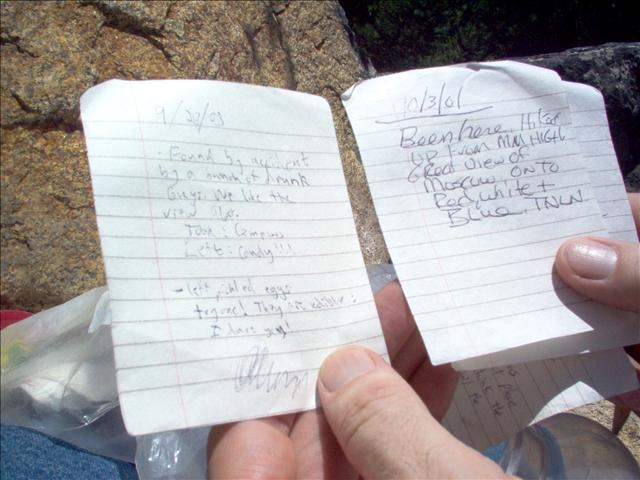 9/20/03
Found by accident
by a bunch of drunk
guys. We like the
view also.
Took: Compass
Left: Candy!!!
- left pickled eggs
They are edible:
I dare you!
10/3/01
Been here. Hiked
up from MM HIGH.
Good view of
Moscow. ONTO
Red, White +
Blue. TNLN